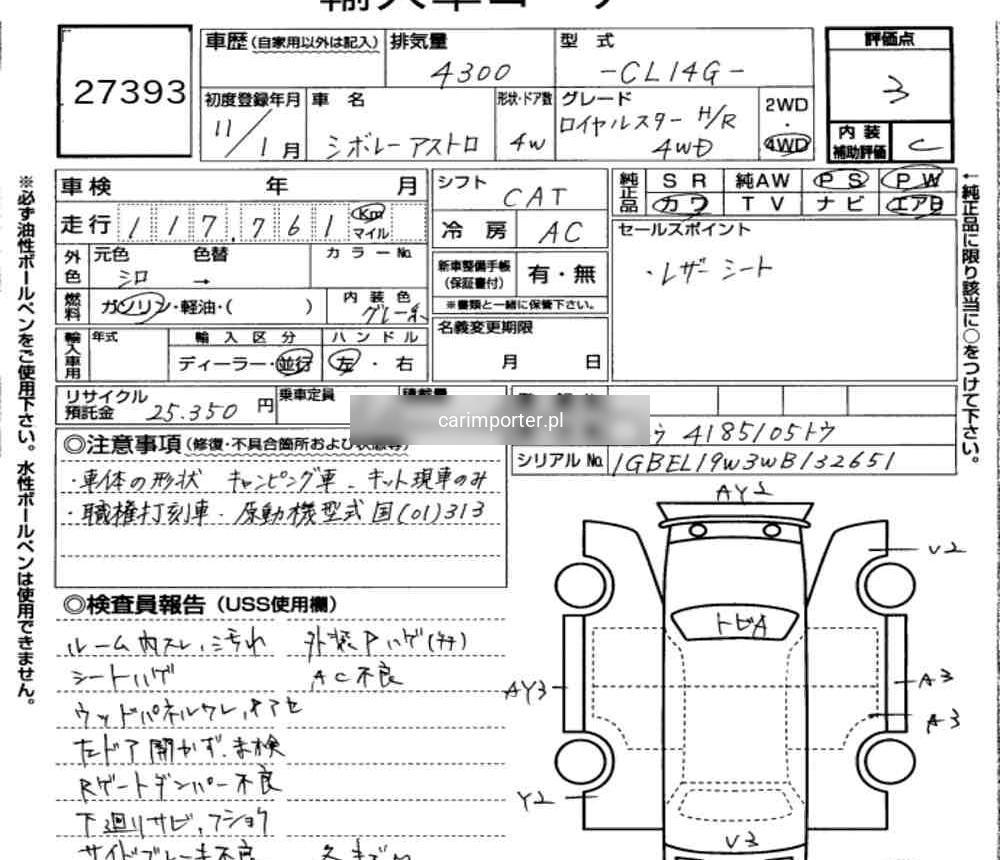 27393
車歴(自家用以外は記入) 排気量 4300 型式 -CL14G-
初度登録年月 11/1月 車名 シボレーアストロ 形状・ドア数 4W グレード ロイヤルスター H/R 4WD 2WD・4WD
評価点 3
内装補助評価 C
車検 年 月
走行 117,761 Km マイル
外色 元色 シロ 色替 → カラーNo.
燃料 ガソリン・軽油・( ) 内装色 グレー系
輸入車用 年式 輸入区分 ディーラー・並行 ハンドル 左・右
シフト CAT
冷房 AC
新車整備手帳(保証書付) 有・無
※書類と一緒に保管下さい。
名義変更期限 月 日
純正品 SR 純AW PS PW
カワ TV ナビ エアB
セールスポイント
・レザーシート
リサイクル預託金 25.350円 乗車定員
4185105トウ
シリアルNo. 1GBEL19W3WB132651
◎注意事項(修復・不具合箇所および状態等)
・車体の形状 キャンピング車 - キット現車のみ
・職権打刻車・原動機型式国(01)313
◎検査員報告(USS使用欄)
ルーム内スレ,汚れ 外装Pハゲ
シートハゲ AC不良
ウッドパネルワレ,
左ドア開かず.未検
Rゲートダンパー不良
下廻りサビ,フショク
サイドブレーキ不良
※必ず油性ボールペンをご使用下さい。水性ボールペンは使用できません。
←純正品に限り該当に○をつけて下さい。
AY2
V2
トビA
AY3
A3
A3
Y2
V3
carimporter.pl